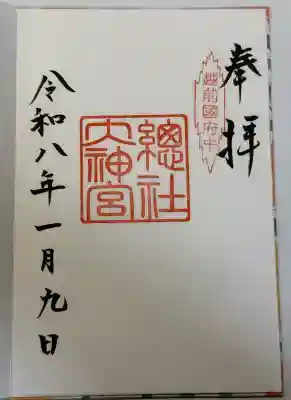 奉拝
越前國府中
總社
大神宮
令和八年一月九日